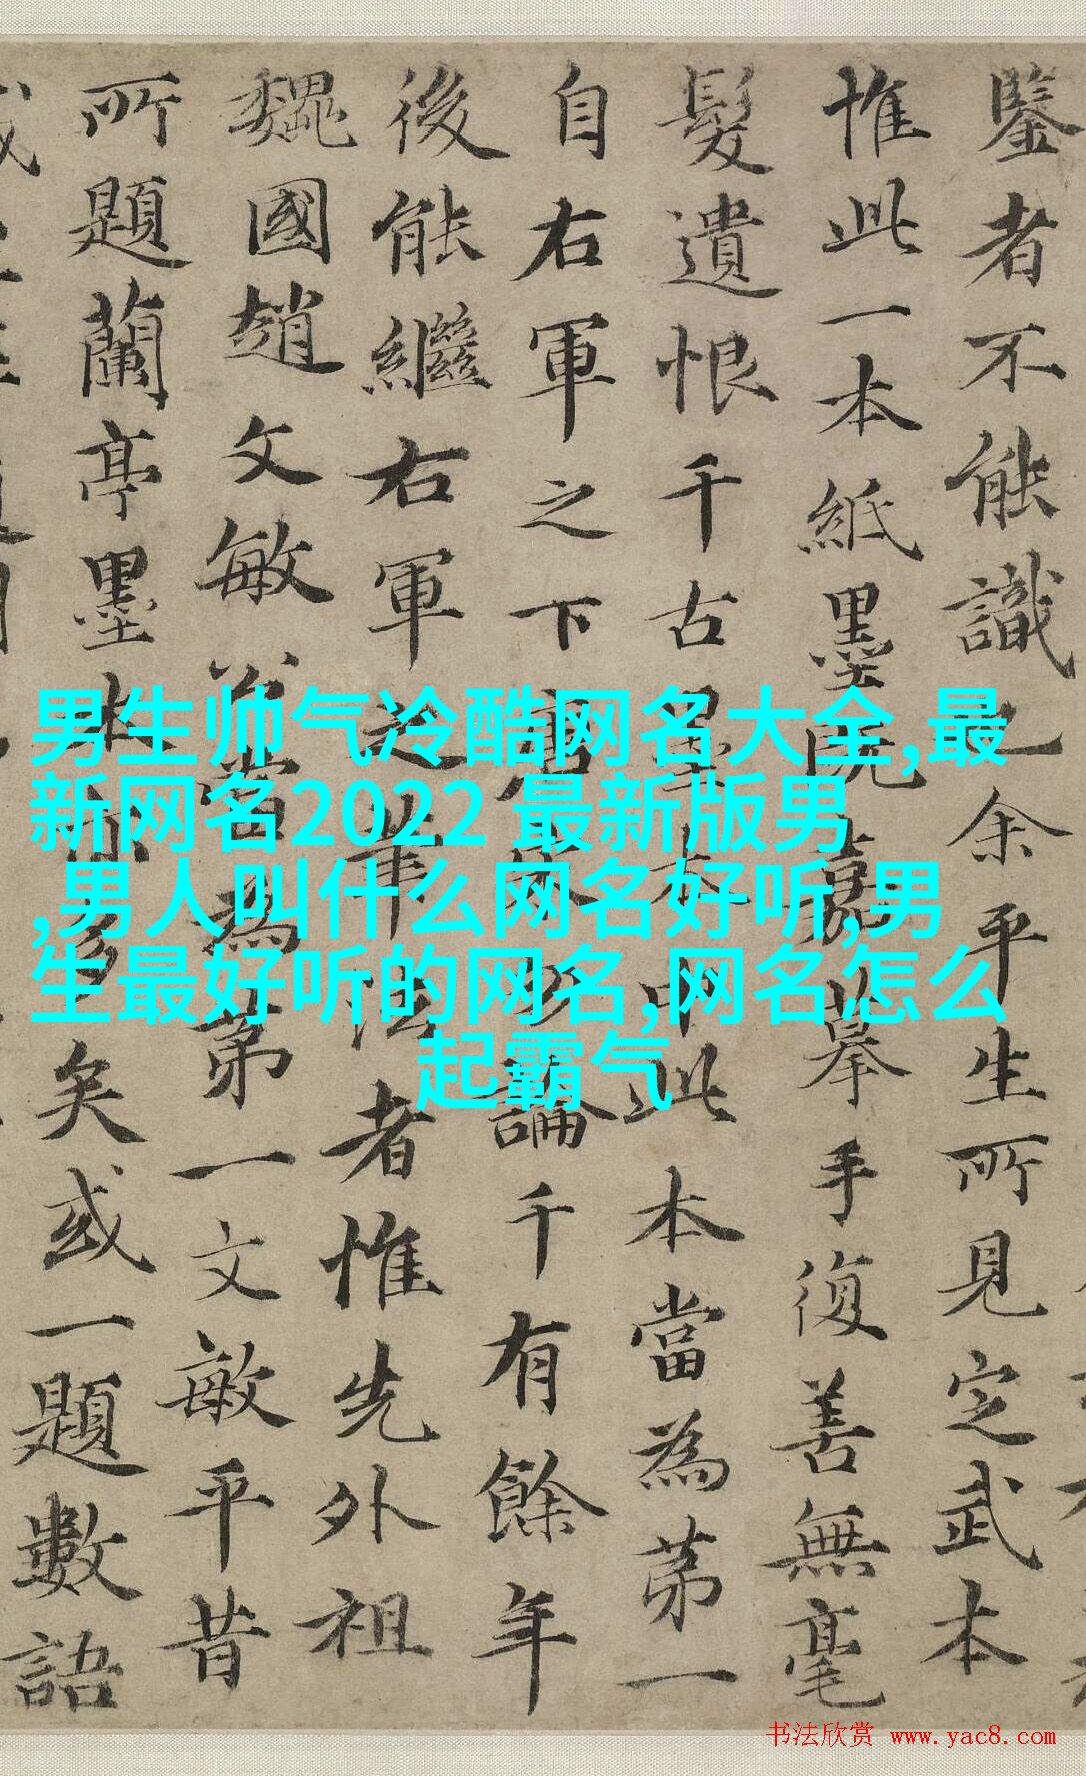 鑒者不能識之余平生所見定武本
惟此一本紙墨既嘉摹手復善無毫
髮遺恨千古墨本中此本當為苐一
自右軍之下論千有餘年
後能繼右軍之筆法者惟先外祖
魏國趙文敏公當為苐一文敏平昔
所題蘭亭墨多矣或一題數語
男生帅气冷酷网名大全,最
新网名2022 最新版男
,男人叫什么网名好听,男
生最好听的网名,网名怎么
起霸气
书法欣赏 www.yac8.com